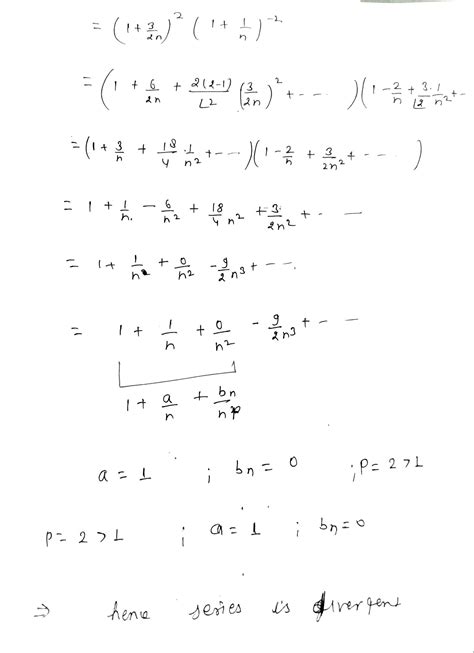 = (1 + 3/2n)² (1 + 1/n)⁻²
= (1 + 6/2n + 2(2-1)/L2 (3/2n)² + - - - - )(1 - 2/n + 3.1/L2 n² + -
= (1 + 3/n + 18/4 . 1/n² + - - )(1 - 2/n + 3/2n² + - - - - )
= 1 + 1/n - 6/n² + 18/4n² + 3/2n² + - -
= 1 + 1/n + 0/n² - 9/2n³ + - - -
= 1 + 1/n + 0/n² - 9/2n³ + - -
1 + a/n + bn/n^p
a = 1 ; bn = 0 ; P = 2 > 1
P = 2 > 1 ; a = 1 ; bn = 0
⇒ hence series is divergent